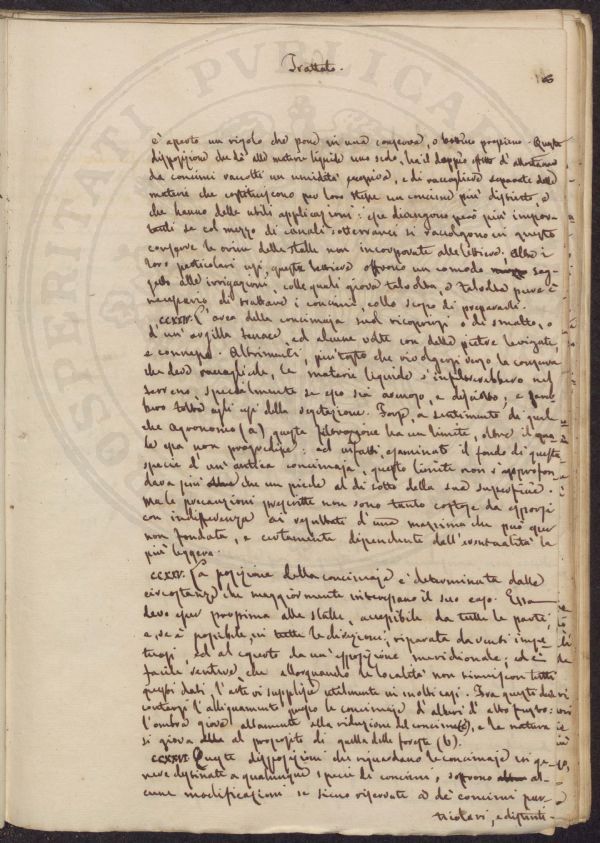 PROSPERITATI PUBLICAE
Trattato.
è aperto un rigolo che pone in una conserva, o bottino prossimo. Queste
disposizione che dà alle materie liquide uno scolo, ha il doppio effetto d'allontanare
da concimi raccolti un umidità nociva, e di raccogliere separate delle
materie che costituiscono per loro stesse un concime più distinto, e
che hanno delle utili applicazioni: esse divengono però più impor
tanti se col mezzo di canali sotterranei si raccolgono in queste
conserve le orine delle stalle non incorporate alle lettiere. Oltre i
loro particolari usi, queste lettiere offrono un comodo sog
getto alle irrigazioni, colle quali giova talvolta, o talvolta pure è
necessario di trattare i concimi, collo scopo di prepararli.
CCXXIV. L'area della concimaja suol ricoprirsi o di smalto, o
d'un argilla tenace, ed alcune volte con delle pietre levigate,
e connesse. Altrimenti, piuttosto che rivolgersi verso la conserva
che deve raccoglierle, le materie liquide s'infiltrerebbero nel
terreno, specialmente se esso sia arenoso, e disciolto; e sareb
bero tolte agli usi della vegetazione. Forse, a sentimento di qual
che Agronomo (a) questa filtrazione ha un limite, oltre il qua
le essa non progredisce: ed infatti, esaminato il fondo di questa
specie d'un'antica concimaja, questo limite non s'approfon
dava più che un piede al di sotto della sua superficie.
Ma le precauzioni prescritte non sono tanto costose da esporsi
con indifferenza ai resultati d'una massima che può esser
non fondata, e certamente dipendente dall'eventualità la
più leggera.
CCXXV. La posizione della concimaja è determinata dalle
circostanze che maggiormente interessano il suo caso. Essa
deve esser prossima alle stalle, accessibile da tutte le parti,
e, se è possibile, in tutte le direzioni, riparata da venti impe
tuosi, ed al coperto da un'esposizione meridionale; ed è
facile sentire, che allorquando le località non riuniscon tutti
questi dati, l'arte vi supplisce utilmente in molti casi. Fra questi deve
contarsi l'alligamento presso le concimaje d'alberi d'alto fusto:
l'ombra giova altamente alla riduzione del concime, e la natura
si giova al proposito di quella delle foreste (b).
CCXXVI. Queste disposizioni che riguardano le concimaje in ge
nere destinate a qualunque specie di concimi, soffrono al
cune modificazioni se sieno riservate a de' concimi par
ticolari, e distinti.